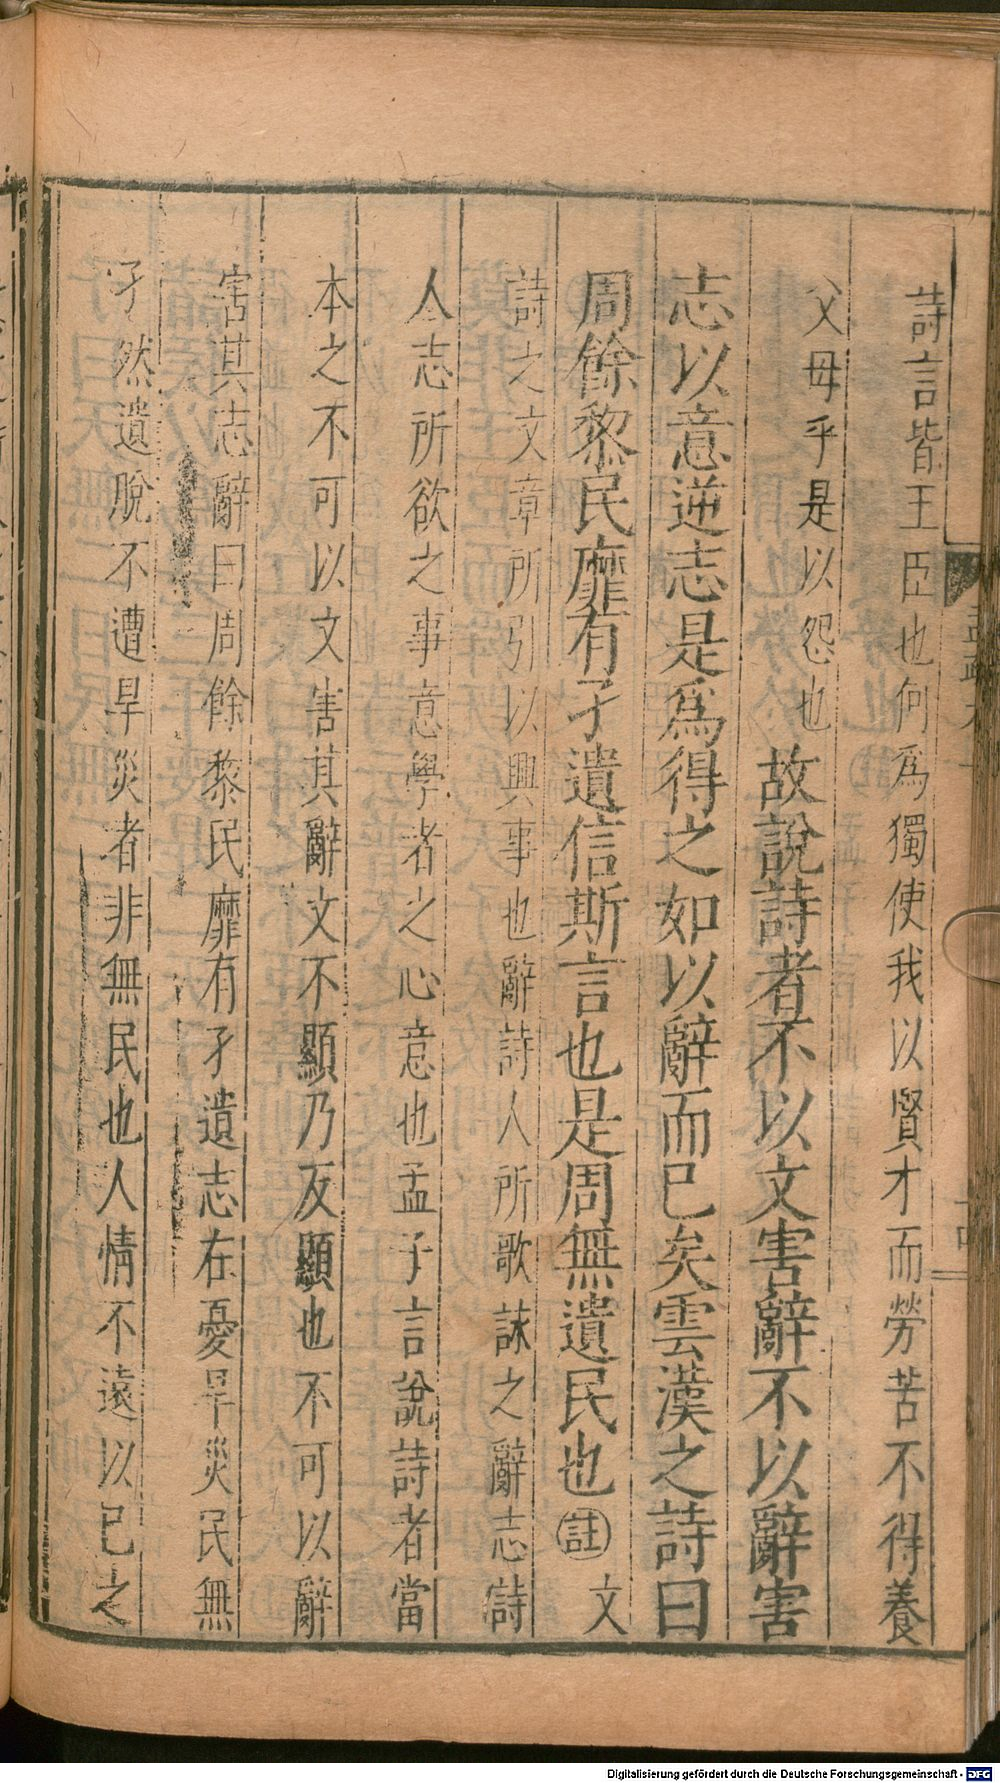 詩言皆王臣也何爲獨使我以賢才而勞苦不得養
父母乎是以怨也故說詩者不以文害辭不以辭害
志以意逆志是爲得之如以辭而已矣雲漢之詩曰
周餘黎民靡有孑遺信斯言也是周無遺民也註文
詩之文章所引以興事也辭詩人所歌詠之辭志詩
人志所欲之事意學者之心意也孟子言說詩者當
本之不可以文害其辭文不顯乃反顯也不可以辭
害其志辭曰周餘黎民靡有孑遺志在憂旱災民無
孑然遺脫不遭旱災者非無民也人情不遠以己之
Digitalisierung gefördert durch die Deutsche Forschungsgemeinschaft - DFG